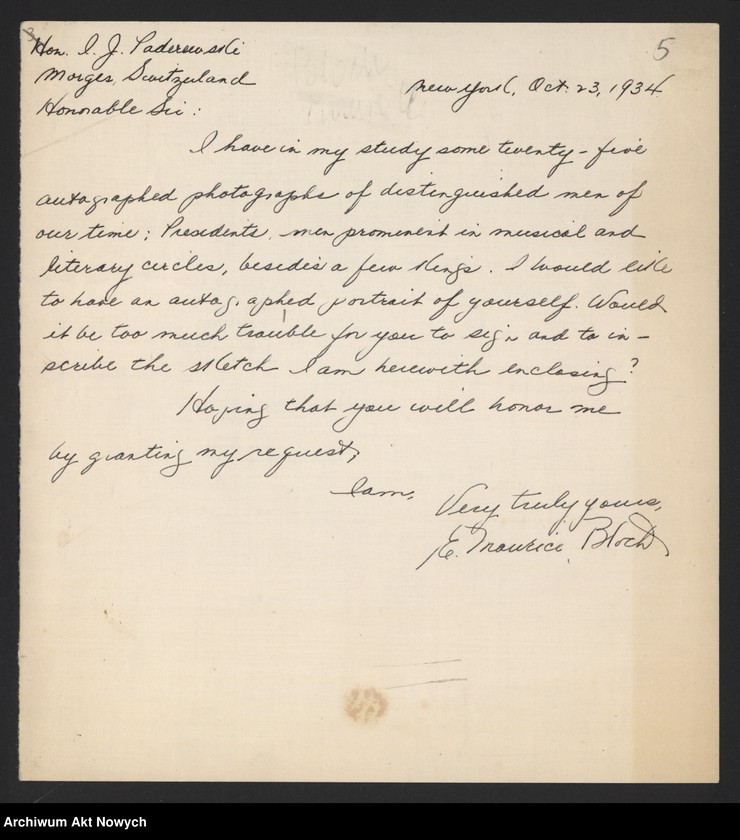 Hon. I. J. Paderewski
Morges, Switzerland
5
New York, Oct. 23, 1934
Honorable Sir:
I have in my study some twenty-five
autographed photographs of distinguished men of
our time; Presidents, men prominent in musical and
literary circles, besides a few Kings. I would like
to have an autographed portrait of yourself. Would
it be too much trouble for you to sign and to in-
scribe the sketch I am herewith enclosing?
Hoping that you will honor me
by granting my request,
I am,
Very truly yours,
E. Maurice Bloch
Archiwum Akt Nowych